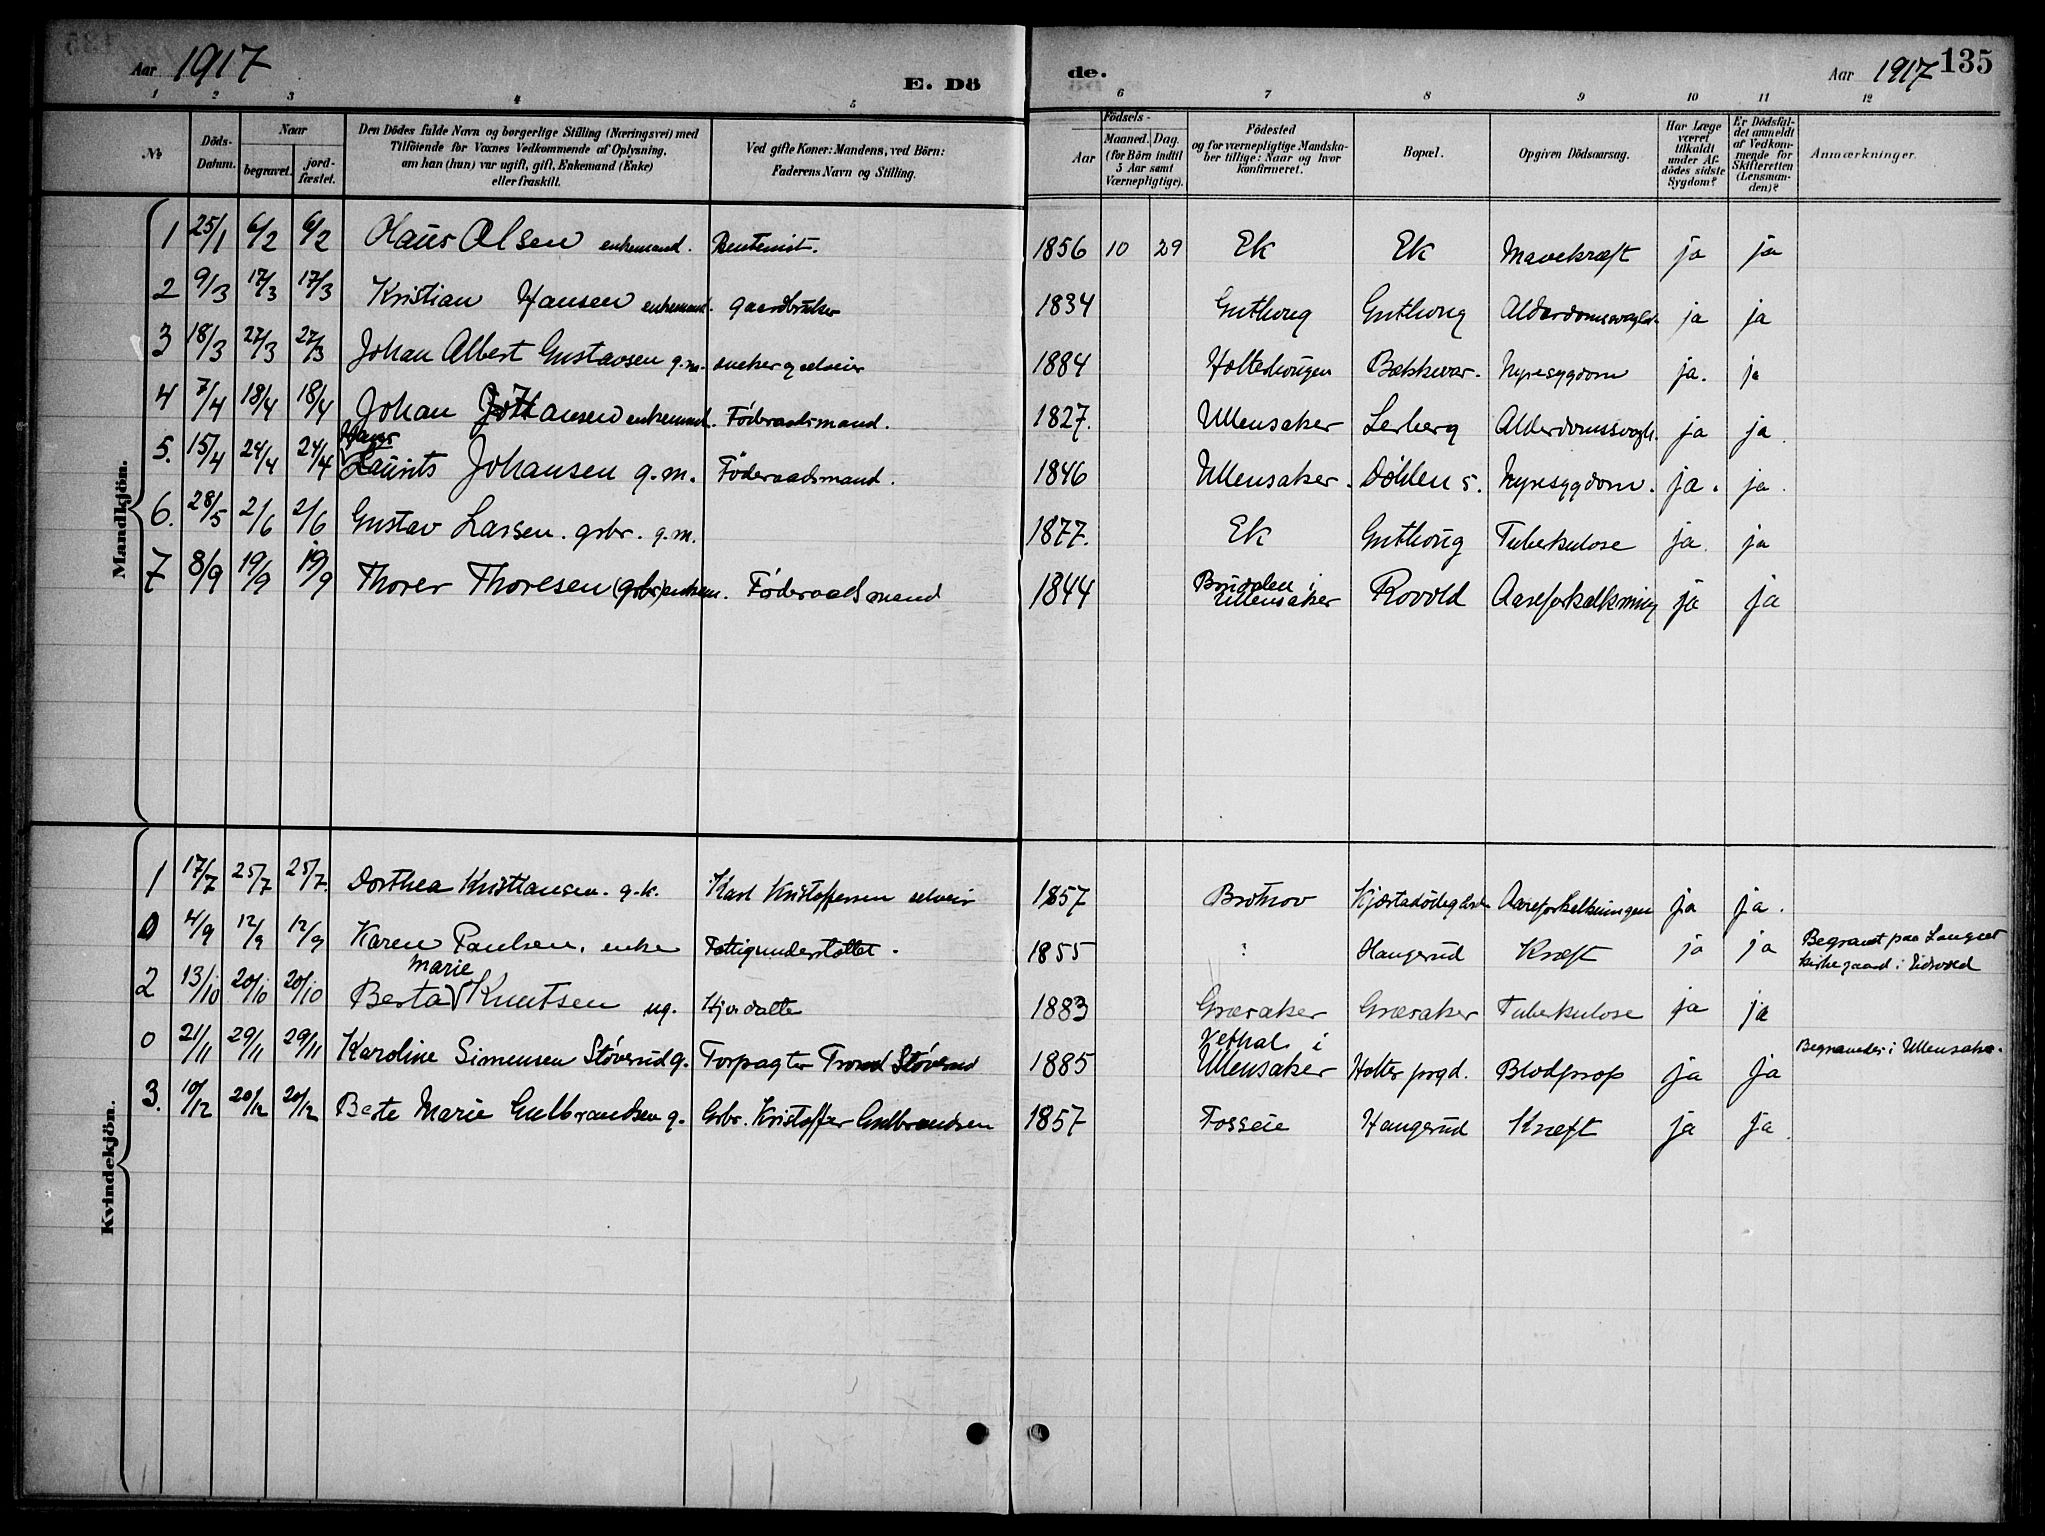 Aar 1917
E. Dö
de.
Aar 1917 135
1 2 3 4 5 6 7 8 9 10 11 12
№
Döds-Datum.
Naar
begravet.
jord-fæstet.
Den Dödes fulde Navn og borgerlige Stilling (Næringsvei) med
Tilföiende for Voxnes Vedkommende af Oplysning,
om han (hun) var ugift, gift, Enkemand (Enke)
eller fraskilt.
Ved gifte Koner: Mandens, ved Börn:
Faderens Navn og Stilling.
Födsels-
Aar
Maaned. Dag.
(for Börn indtil
5 Aar samt
Værnepligtige).
Födested
og for værnepligtige Mandska-
ber tillige: Naar og hvor
konfirmeret.
Bopæl.
Opgiven Dödsaarsag.
Har Læge
været
tilkaldt
under Af-
dödes sidste
Sygdom?
Er Dödsfal-
det anmeldt
af Vedkom-
mende for
Skifteretten
(Lensman-
den)?
Anmærkninger.
Mandkjön.
1 25/1 6/2 6/2 Olaus Olsen enkemand. Rentenist. 1856 10 29 Ek Ek Mavekræft ja ja
2 9/3 17/3 17/3 Kristian Hansen enkemand. gaardbruker 1834 Guthoug Guthoug Alderdomssvaghd. ja ja
3 18/3 27/3 27/3 Johan Albert Gustavsen g.m. snekker og selveier 1884 Holterhougen Bækkevar. Nyresygdom ja. ja
4 7/4 18/4 18/4 Johan Johansen enkemand. Föderaadsmand. 1827. Ullensaker Lerberg Alderdomssvagh. ja ja.
Hans
5. 15/4 24/4 24/4 Laurits Johansen g.m. Föderaadsmand. 1846 Ullensaker. Döhlen s. Nyresygdom. ja. ja.
6. 28/5 2/6 2/6 Gustav Larsen. grbr. g.m. 1877. Ek Guthoug Tuberkulose ja. ja
7 8/9 19/9 19/9 Thorer Thoresen (grbr) enkem. Föderaadsmand 1844 Brudalen i Ullensaker Rovold Aareforkalkning ja ja
Kvindekjön.
1 17/7 25/7 25/7. Dorthea Kristiansen. g.k. Karl Kristoffersen selveier 1857 Brotnov ja ja.
0 4/9 12/9 12/9 Karen Paulsen. enke Fattigunderstöttet. 1855 Haugerud Kræft ja ja Begravet paa Langset
kirkegaard i Eidsvold
Marie
2 13/10 20/10 20/10 Berta Knutsen ug. 1883 Græsaker Græsaker Tuberkulose ja ja
0 21/11 29/11 29/11 Karoline Simensen Støverud g. Forpagter Trond Støverud 1885 Vethal i Ullensaker Holter prgd. Blodprop ja ja Begravedes i Ullensaker.
3. 10/12 20/12 20/12 Berte Marie Gulbrandsen g. Grbr. Kristoffer Gulbrandsen 1857 Fosseie Haugerud Kræft ja ja.